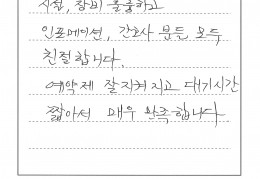 시설, 장비 훌륭하고
인포메이션, 간호사 분들 모두
친절합니다.
예약제 잘 지켜지고 대기시간
짧아서 매우 만족합니다.